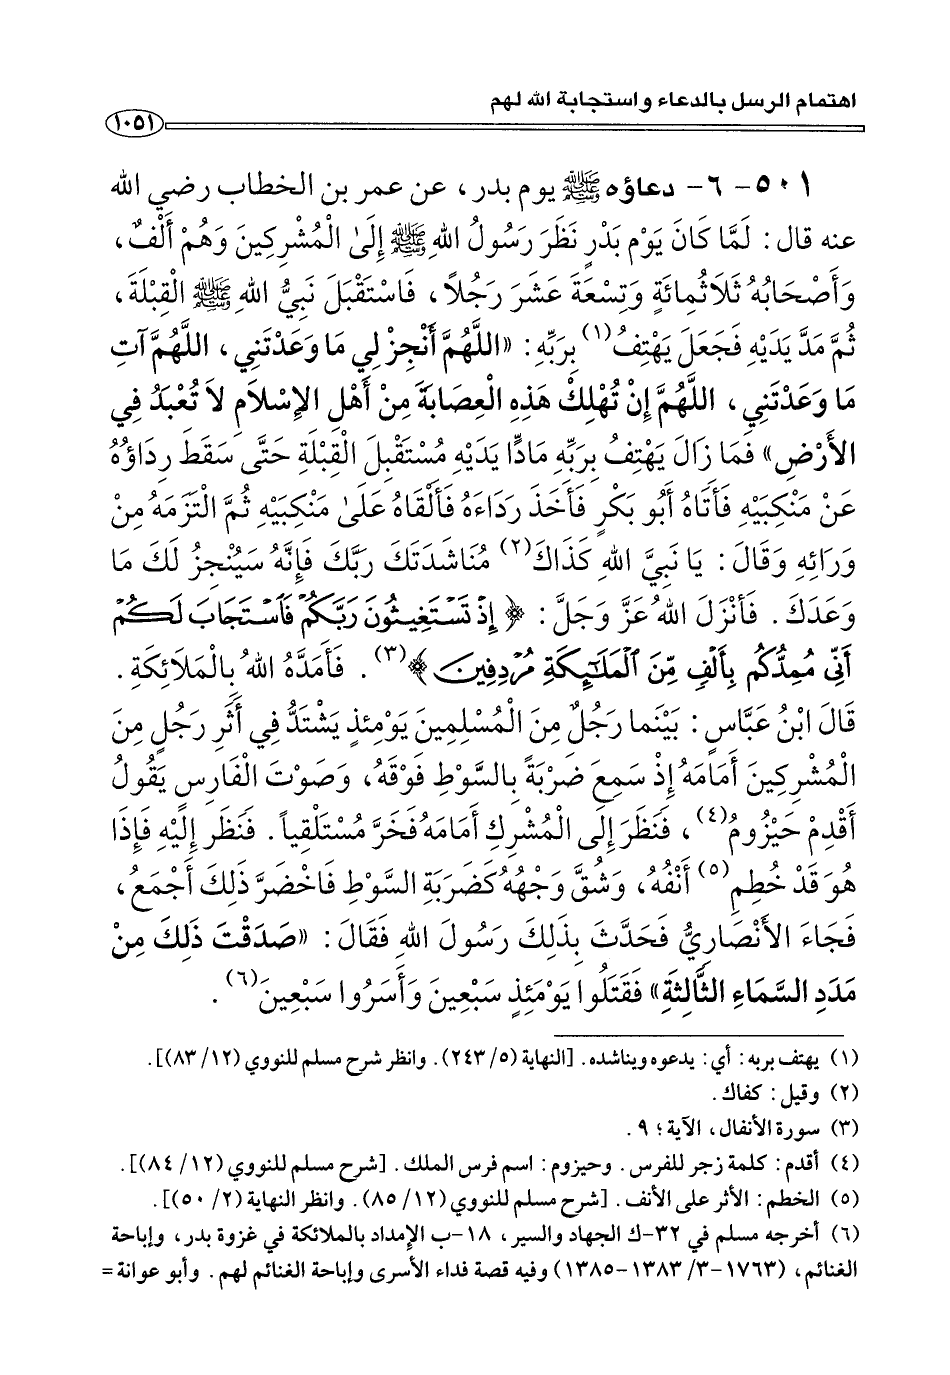 اهتمام الرسل بالدعاء واستجابة الله لهم
١٠٥١
٥٠١- ٦- دعاؤه ﷺ يوم بدر، عن عمر بن الخطاب رضي الله
عنه قال: لَمَّا كَانَ يَوْم بَدْرٍ نَظَرَ رَسُولُ اللهِ ﷺ إِلَىٰ الْمُشْرِكِينَ وَهُمْ أَلْفٌ،
وَأَصْحَابُهُ ثَلَاثُمِائَةٍ وَتِسْعَةَ عَشَرَ رَجُلاً، فَاسْتَقْبَلَ نَبِيُّ اللهِ ﷺ الْقِبْلَةَ،
ثُمَّ مَدَّ يَدَيْهِ فَجَعَلَ يَهْتِفُ(١) بِرَبِّهِ: «اللَّهُمَّ أَنْجِزْ لِي مَا وَعَدْتَنِي، اللَّهُمَّ آتِ
مَا وَعَدْتَنِي، اللَّهُمَّ إِنْ تُهْلِكْ هَذِهِ الْعِصَابَةَ مِنْ أَهْلِ الإِسْلَامِ لاَ تُعْبَدُ فِي
الأَرْضِ» فَمَا زَالَ يَهْتِفُ بِرَبِّهِ مَادًّا يَدَيْهِ مُسْتَقْبِلَ الْقِبْلَةِ حَتَّى سَقَطَ رِدَاؤُهُ
عَنْ مَنْكِبَيْهِ فَأَتَاهُ أَبُو بَكْرٍ فَأَخَذَ رِدَاءَهُ فَأَلْقَاهُ عَلَىٰ مَنْكِبَيْهِ ثُمَّ الْتَزَمَهُ مِنْ
وَرَائِهِ وَقَالَ: يَا نَبِيَّ اللهِ كَذَاكَ(٢) مُنَاشَدَتَكَ رَبَّكَ فَإِنَّهُ سَيُنْجِزُ لَكَ مَا
وَعَدَكَ. فَأَنْزَلَ اللهُ عَزَّ وَجَلَّ: ﴿إِذْ تَسْتَغِيثُونَ رَبَّكُمْ فَاسْتَجَابَ لَكُمْ
أَنِّي مُمِدُّكُم بِأَلْفٍ مِّنَ الْمَلَائِكَةِ مُرْدِفِينَ﴾(٣). فَأَمَدَّهُ اللهُ بِالْمَلَائِكَةِ.
قَالَ ابْنُ عَبَّاسٍ: بَيْنَما رَجُلٌ مِنَ الْمُسْلِمِينَ يَوْمِئذٍ يَشْتَدُّ فِي أَثَرِ رَجُلٍ مِنَ
الْمُشْرِكِينَ أَمَامَهُ إِذْ سَمِعَ ضَرْبَةً بِالسَّوْطِ فَوْقَهُ، وَصَوْتَ الْفَارِسِ يَقُولُ
أَقْدِمْ حَيْزُومُ(٤)، فَنَظَرَ إِلَى الْمُشْرِكِ أَمَامَهُ فَخَرَّ مُسْتَلْقِياً. فَنَظَرَ إِلَيْهِ فَإِذَا
هُوَ قَدْ خُطِم(٥) أَنْفُهُ، وَشُقَّ وَجْهُهُ كَضَرَبَةِ السَّوْطِ فَاخْضَرَّ ذَلِكَ أَجْمَعُ،
فَجَاءَ الأَنْصَارِيُّ فَحَدَّثَ بِذَلِكَ رَسُولَ اللهِ فَقَالَ: «صَدَقْتَ ذَلِكَ مِنْ
مَدَدِ السَّمَاءِ الثَّالِثَةِ» فَقَتَلُوا يَوْمَئِذٍ سَبْعِينَ وَأَسَرُوا سَبْعِينَ(٦).
(١) يهتف بربه: أي: يدعوه ويناشده. [النهاية (٥/ ٢٤٣). وانظر شرح مسلم للنووي (١٢/ ٨٣)].
(٢) وقيل: كفاك.
(٣) سورة الأنفال، الآية؛ ٩.
(٤) أقدم: كلمة زجر للفرس. وحيزوم: اسم فرس الملك. [شرح مسلم للنووي (١٢/ ٨٤)].
(٥) الخطم: الأثر على الأنف. [شرح مسلم للنووي (١٢/ ٨٥). وانظر النهاية (٢/ ٥٠)].
(٦) أخرجه مسلم في ٣٢-ك الجهاد والسير، ١٨-ب الإمداد بالملائكة في غزوة بدر، وإباحة
الغنائم، (١٧٦٣-٣/ ١٣٨٣-١٣٨٥) وفيه قصة فداء الأسرى وإباحة الغنائم لهم. وأبو عوانة =